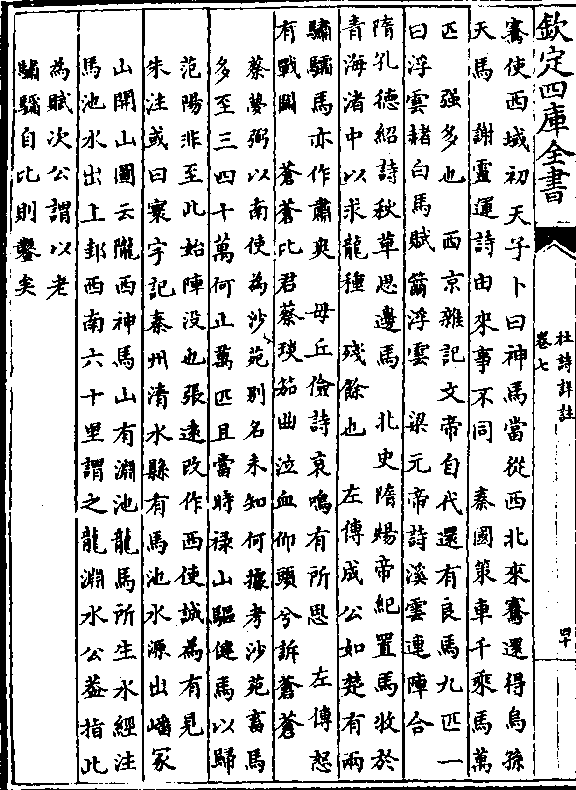 欽定四庫全書
杜詩詳註
卷七
四十
騫使西域初天子卜曰神馬當從西北來騫還得烏孫
天馬 謝靈運詩由來事不同 秦國策車千乘馬萬
匹 强多也 西京雜記文帝自代還有良馬九匹一
曰浮雲赭白馬賦籋浮雲 梁元帝詩溪雲連陣合
隋孔德紹詩秋草思邊馬 北史隋煬帝紀置馬牧於
青海渚中以求龍種 殘餘也 左傳成公如楚有兩
驌驦馬亦作肅爽 毋丘儉詩哀鳴有所思 左傳怒
有戰鬭 蒼蒼比君蔡琰笳曲泣血仰頭兮訴蒼蒼
蔡夢弼以南使為沙苑别名未知何據考沙苑畜馬
多至三四十萬何止萬匹且當時禄山驅健馬以歸
范陽非至此始陣没也張遠改作西使誠為有見
朱注或曰寰宇記秦州清水縣有馬池水源出嶓冢
山開山圖云隴西神馬山有淵池龍馬所生水經注
馬池水出上邽西南六十里謂之龍淵水公葢指此
為賦次公謂以老
驌驦自比則鑿矣